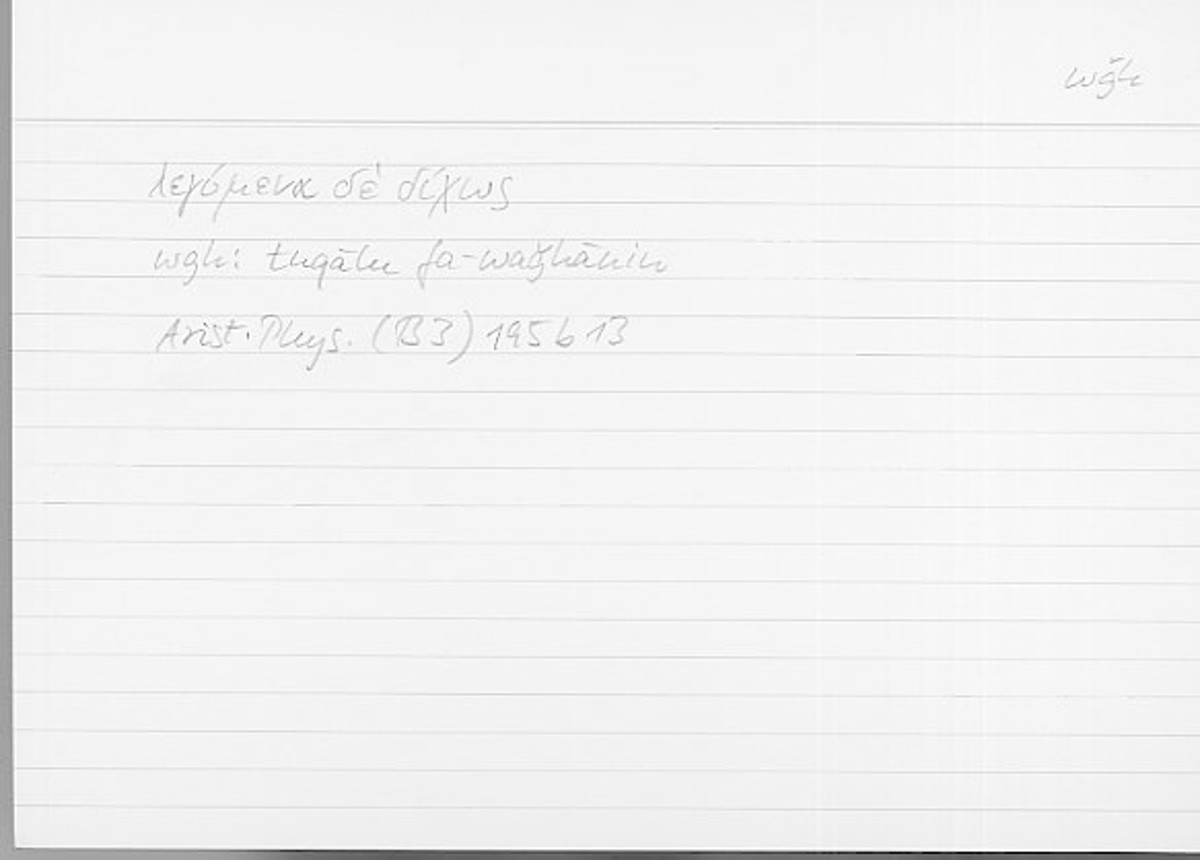 wǧh
λεγόμενα δὲ δίχως
wgh: tuqālu fa-waǧhānin
Arist. Phys. (B3) 195 b 13